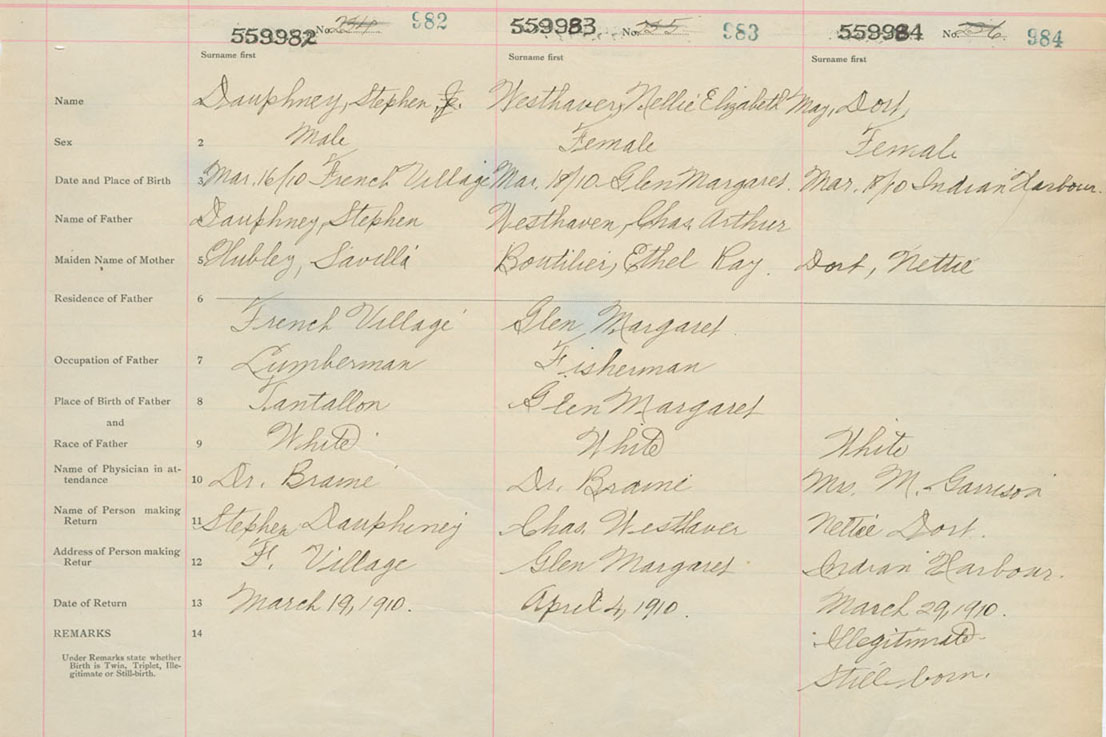 559982 No. 234 982 559983 No. 235 983 559984 No. 236 984
Surname first Surname first Surname first
Name Dauphney, Stephen, Jr. Westhaver, Nellie Elizabeth May, Dort,
Sex 2 Male Female Female
Date and Place of Birth 3 Mar. 16/10 French Village Mar. 18/10 Glen Margaret. Mar. 8/10 Indian Harbour.
Name of Father Dauphney, Stephen Westhaver, Chas. Arthur
Maiden Name of Mother 5 Hubley, Savilla Boutilier, Ethel Ray. Dort, Nettie
Residence of Father 6
French Village Glen Margaret.
Occupation of Father 7 Lumberman Fisherman
Place of Birth of Father 8 Tantallon Glen Margaret
and
Race of Father 9 White White White
Name of Physician in at-
tendance 10 Dr. Braine Dr. Braine Mrs. M. Garrison
Name of Person making
Return 11 Stephen Daupheney Chas. Westhaver Nettie Dort.
Address of Person making
Retur 12 F. Village Glen Margaret Indian Harbour.
Date of Return 13 March 19, 1910. April 4, 1910. March 29, 1910.
REMARKS 14 Illegitimate
Under Remarks state whether
Birth is Twin, Triplet, Ille-
gitimate or Still-birth.
Still born.